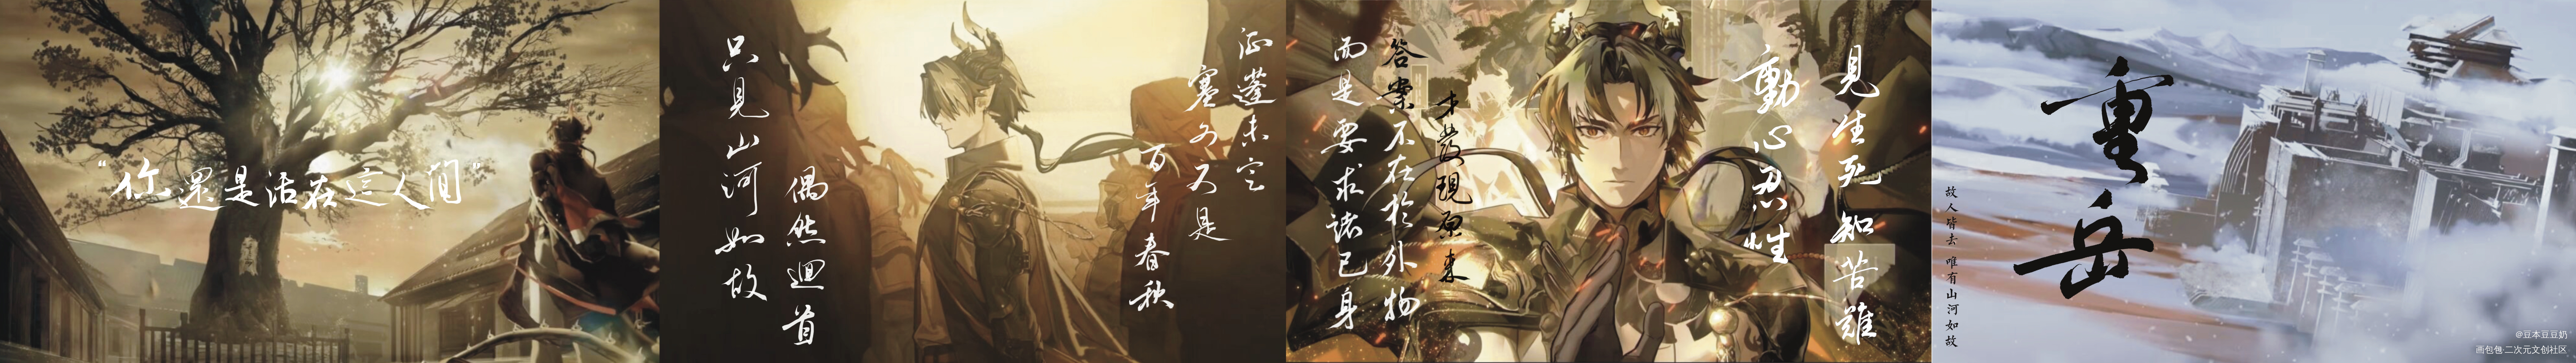 “你還是活在這人間”
征蓬未定
塞外又是
百年春秋
偶然迴首
只見山河如故
見生死知苦難
動心忍性
才發現原來
答案不在於外物
而是要求諸己身
重岳
故人皆去 唯有山河如故
@豆本豆豆奶
画包包·二次元文创社区